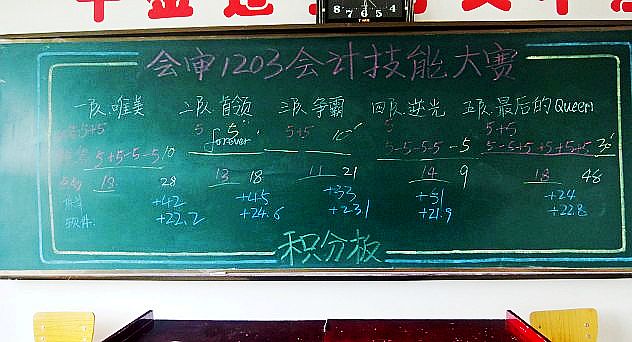 会审1203会计技能大赛
一队.唯美 二队 首领 三队 争霸 四队 逆光 五队.最后的Queen
5 5 5+5 5 5+5
forever
5+5-5-5 10 5-5-5-5 -5 5-5+5+5+5+5
13 28 13 18 11 21 14 9 18 48
+42 +45 +33 +51 +24
软件. +22.2 +24.6 +231 +21.9 +22.8
积分板